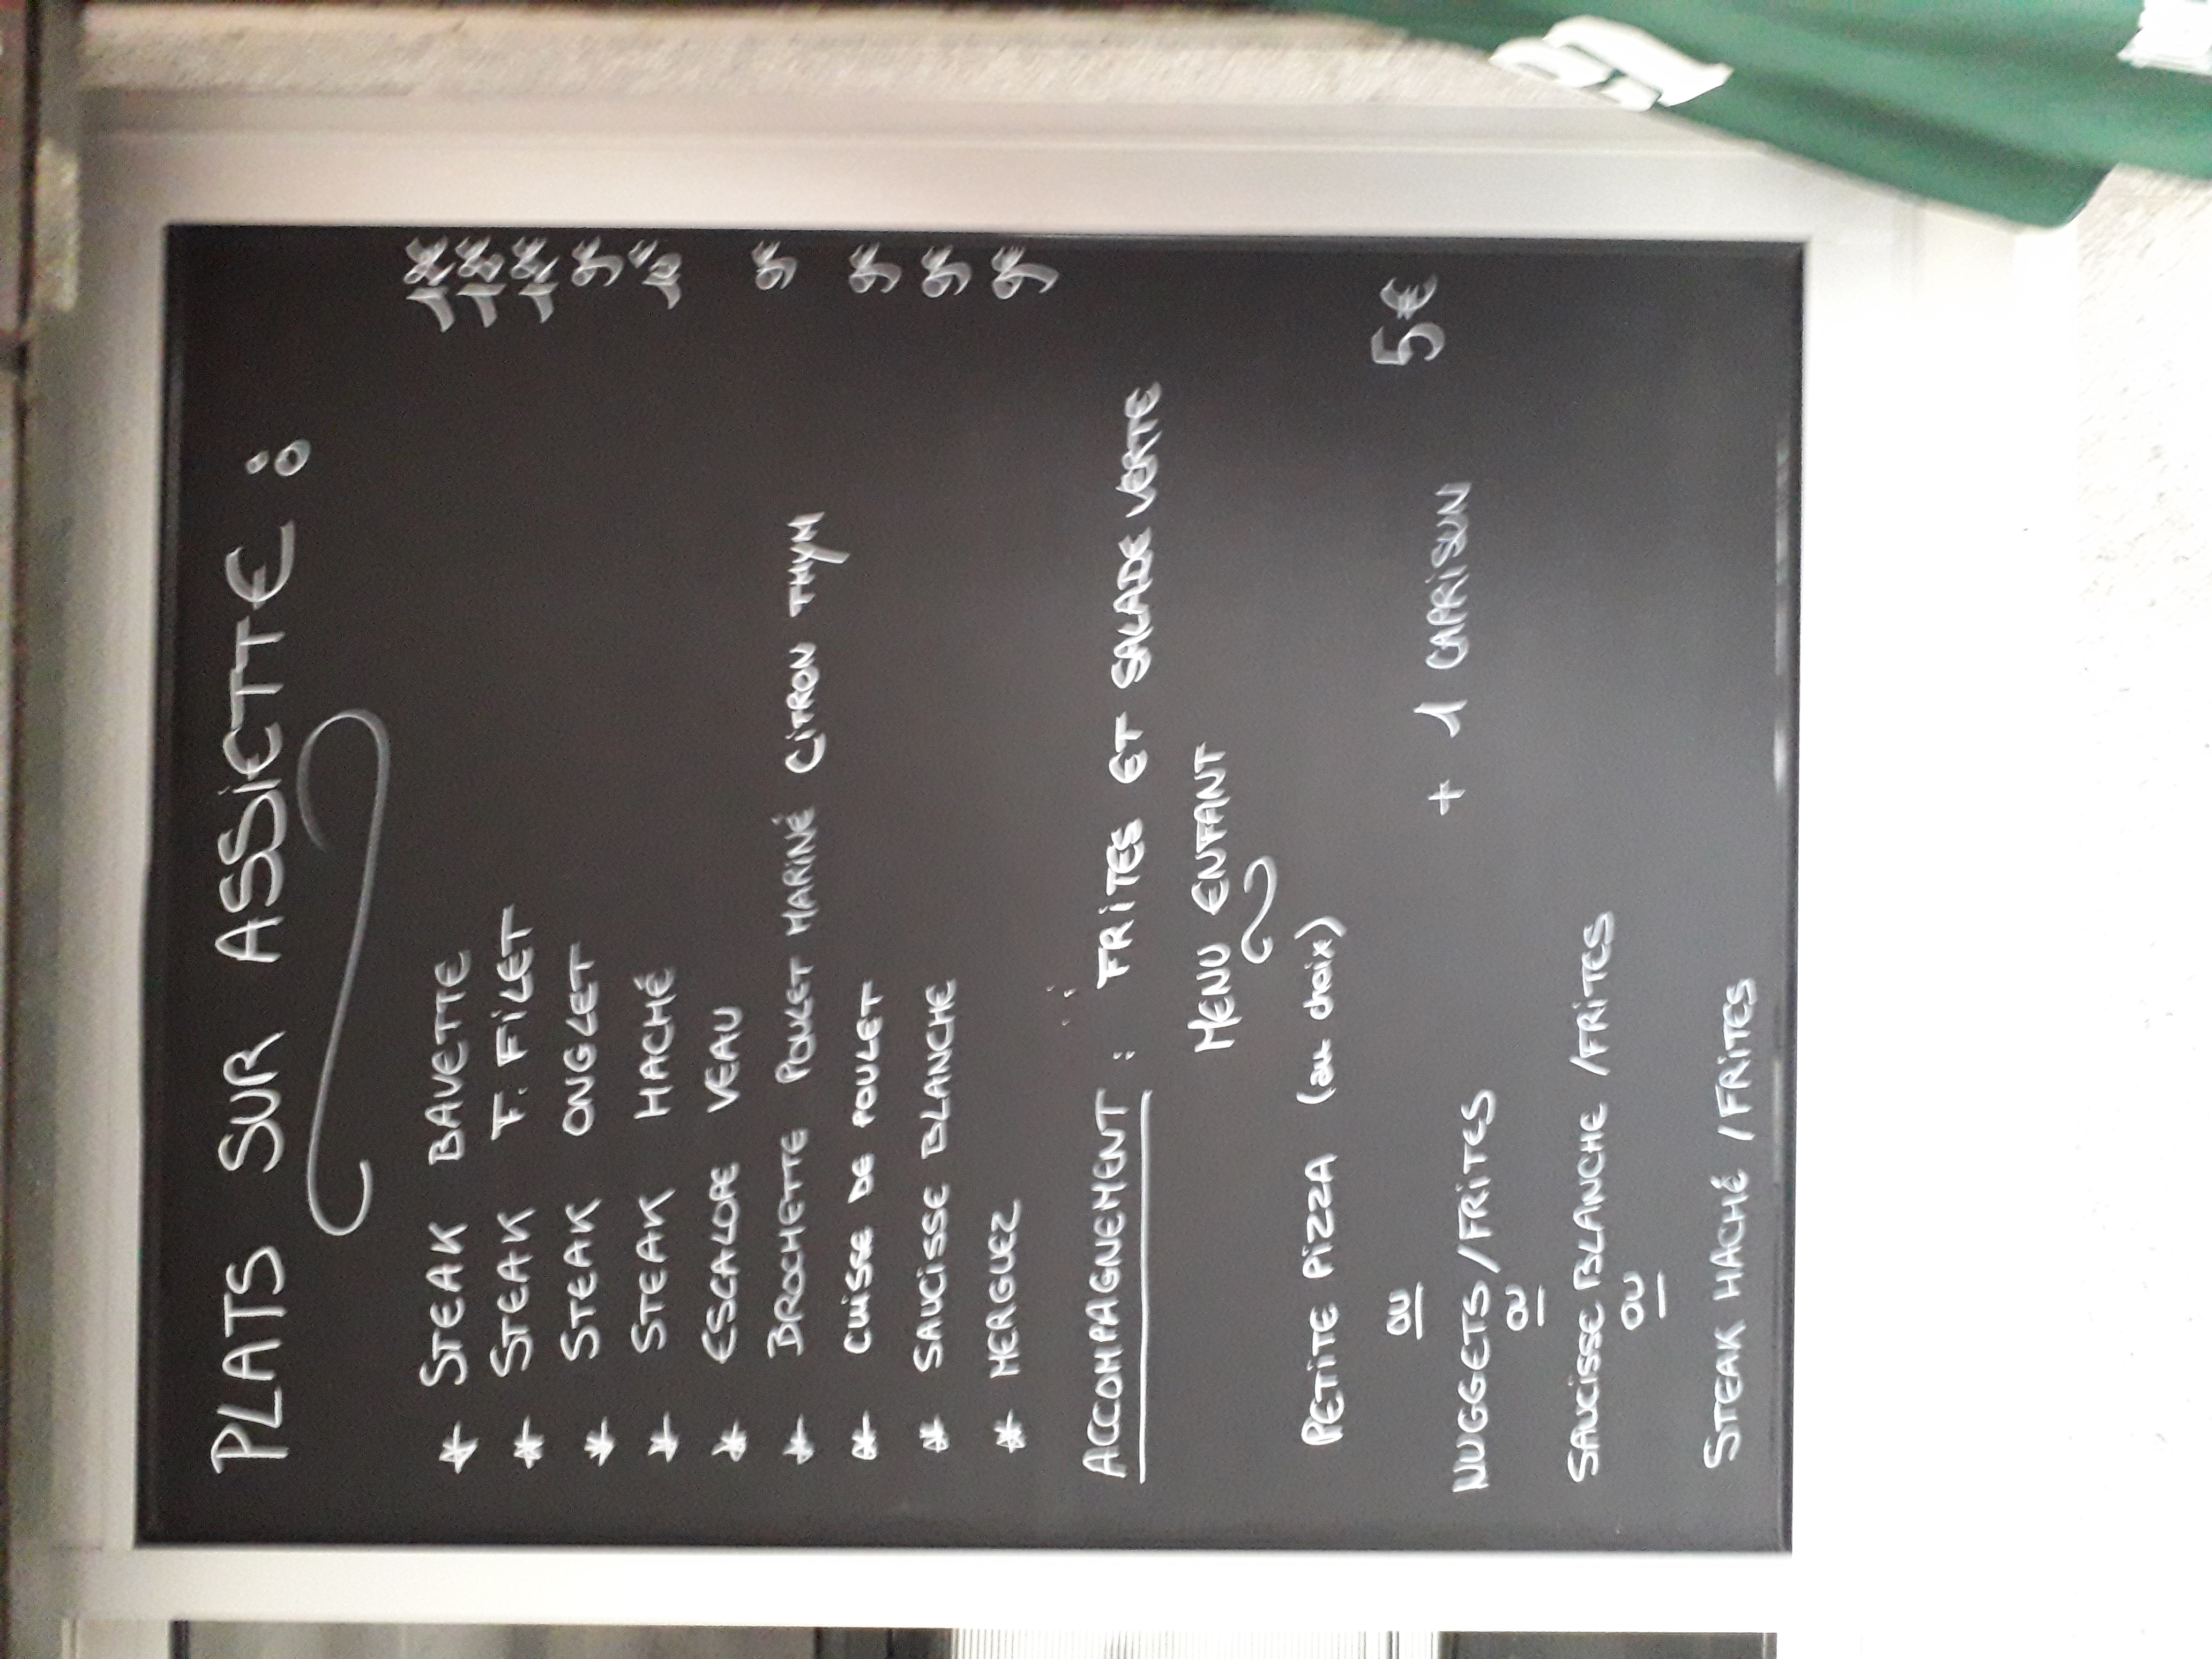 PLATS SUR ASSIETTE :
* STEAK BAVETTE
* STEAK F. FILET
* STEAK ONGLET
* STEAK HACHÉ
* ESCALOPE VEAU
* BROCHETTE POULET MARINÉ CITRON THYM
* CUISSE DE POULET
* SAUCISSE BLANCHE
* MERGUEZ
ACCOMPAGNEMENT : FRITES ET SALADE VERTE
MENU ENFANT
PETITE PIZZA (au choix)
5€
OU
+ 1 CAPRISUN
NUGGETS/FRITES
OU
SAUCISSE BLANCHE /FRITES
OU
STEAK HACHÉ /FRITES